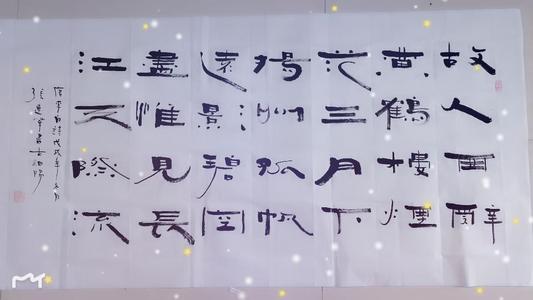 故人西辭
黄鶴樓煙
花三月下
揚州孤帆
遠影碧空
盡惟見長
江天際流
李白詩戊戌年